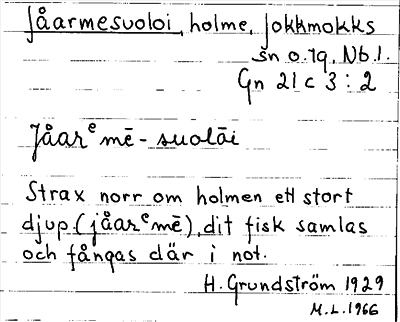 Jåarmesuoloi, holme, Jokkmokks
sn o. rq. Nb. l.
Gn 21 c 3 : 2
Jåarᵉmē - suolāi
Strax norr om holmen ett stort
djup (jåarᵉmē), dit fisk samlas
och fångas där i not.
H. Grundström 1929
M.L. 1966